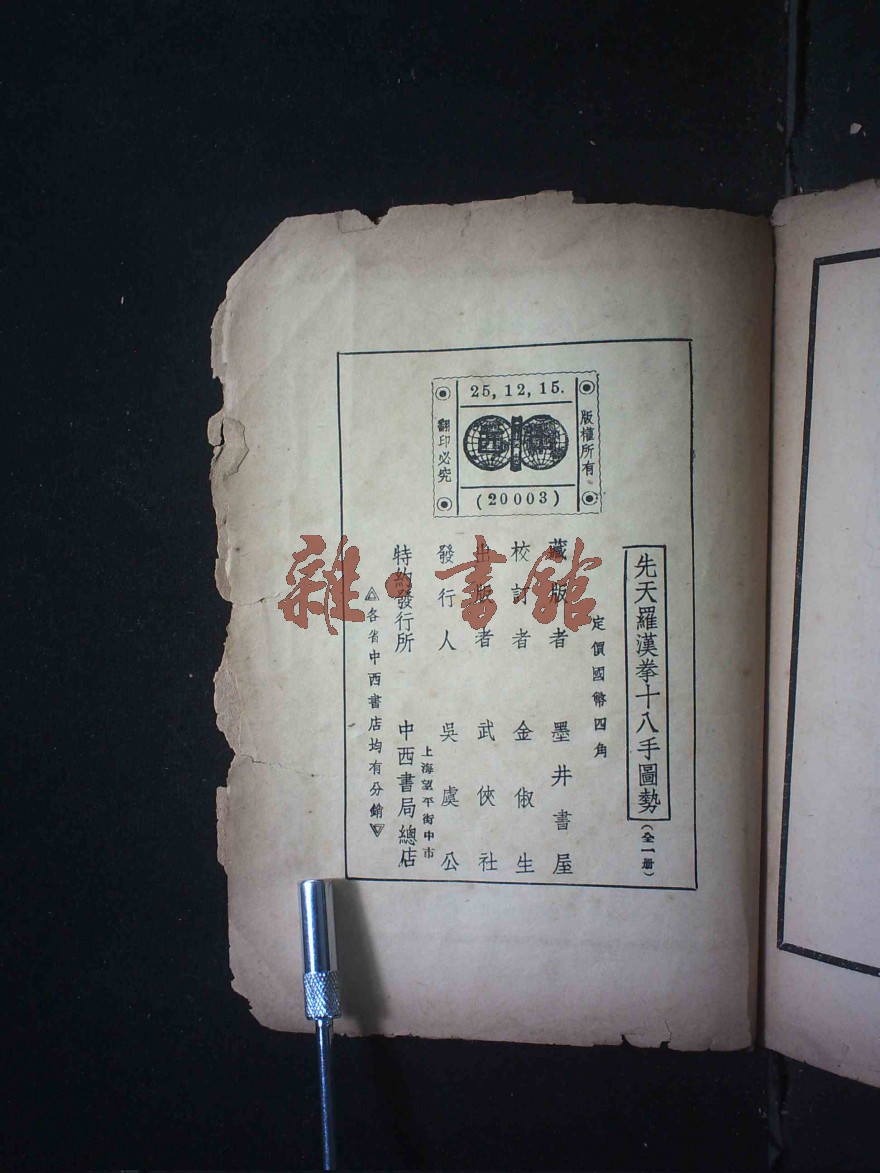 25, 12, 15.
版權所有
翻印必究
(20003)
先天羅漢拳十八手圖勢
(全一册)
定價國幣四角
藏版者 墨井書屋
校訂者 金俶生
出版者 武俠社
發行人 吳虞公
上海望平街中市
特約發行所 中西書局總店
各省中西書店均有分銷
雜·書館